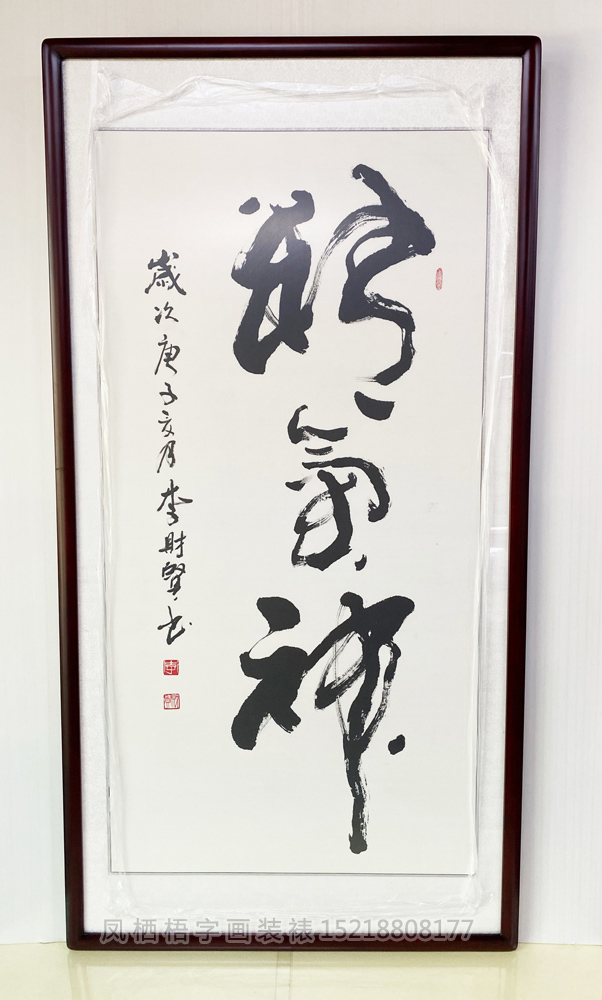 精氣神
歲次庚子亥月李財賢书
凤栖梧字画装裱15218808177